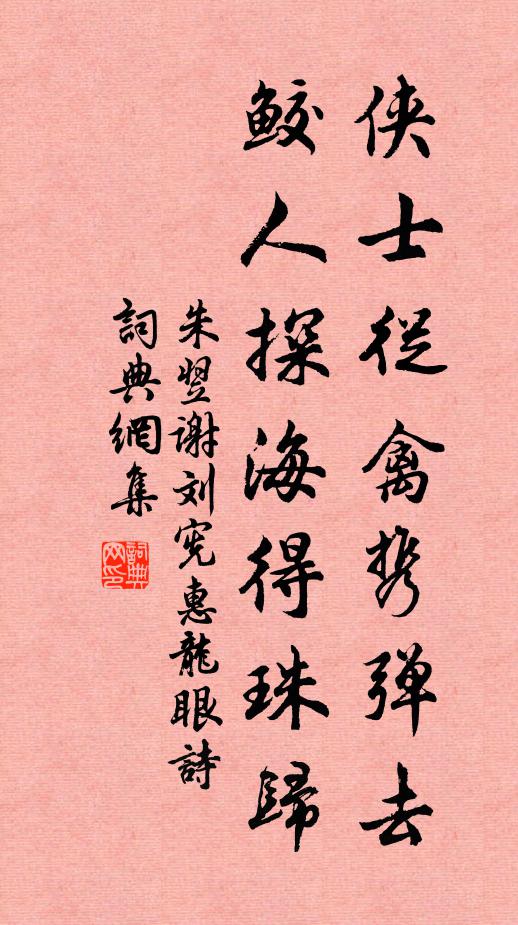 侠士從禽携弹去
鮫人探海得珠歸
朱翌谢刘宪惠龍眼詩
詞典網集
詞典网印